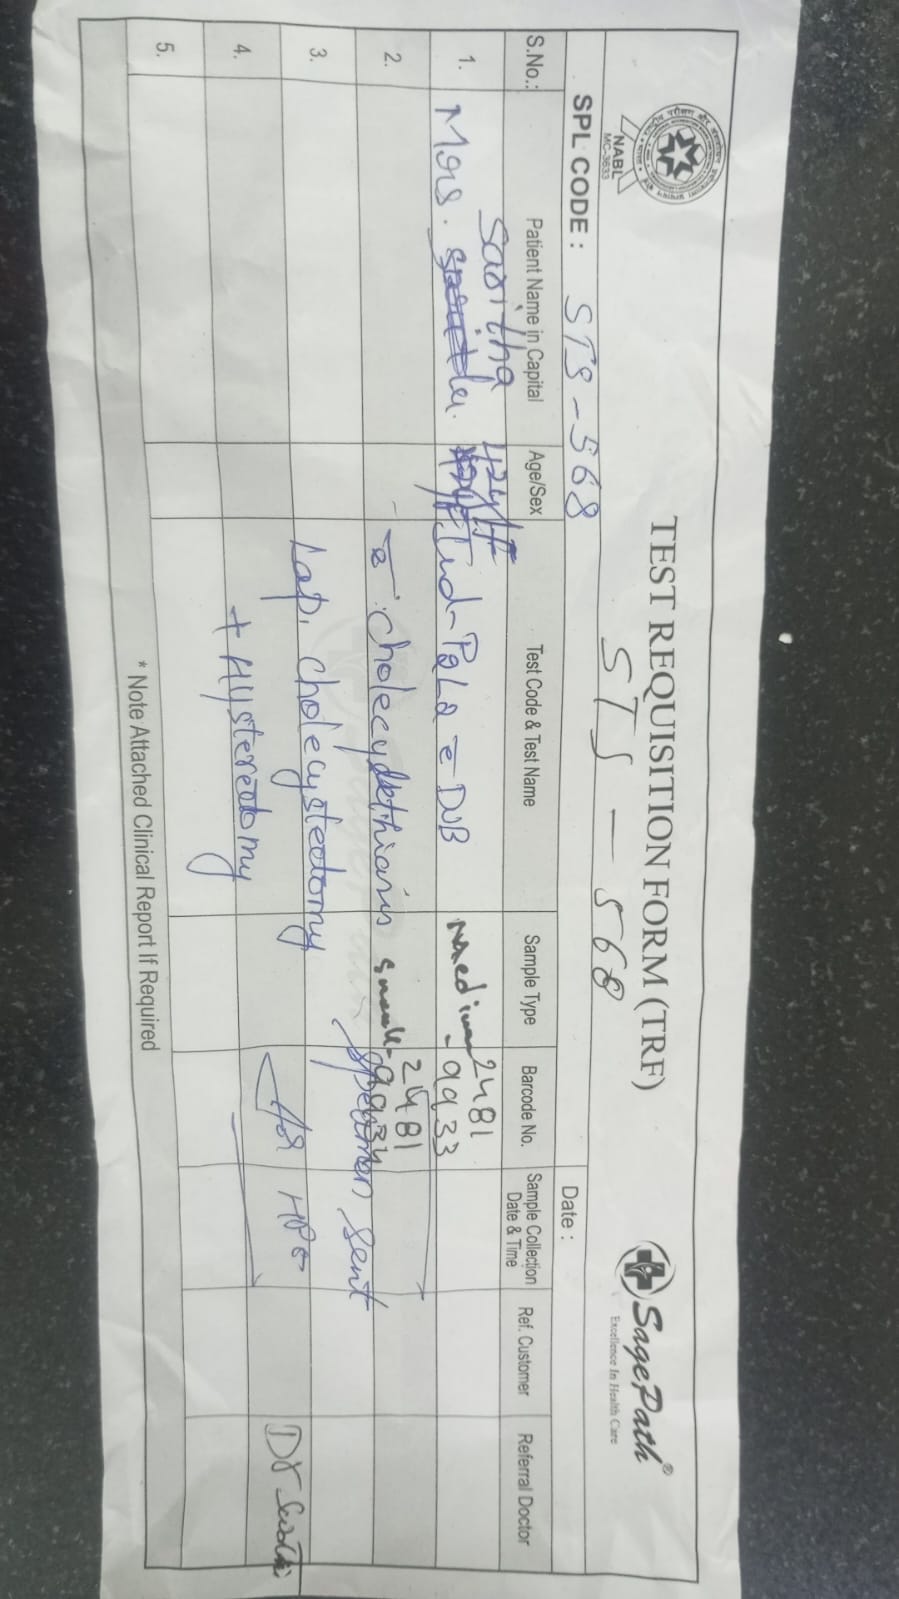 TEST REQUISITION FORM (TRF)
NABL
MC-3633
SagePath®
Excellence In Health Care
STS - 568
SPL CODE : STS - 568
Date :
S.No.: Patient Name in Capital Age/Sex Test Code & Test Name Sample Type Barcode No. Sample Collection Date & Time Ref. Customer Referral Doctor
Saritha 42y/F
1. Mrs. Ind- P2L2 c DUB Medium - 24819933
2. c cholecydethiasis small - 24819934
specimen sent
3. Lap. cholecystectomy
for HPE
4. + Hysterectomy
Dr Swathi
5.
* Note Attached Clinical Report If Required